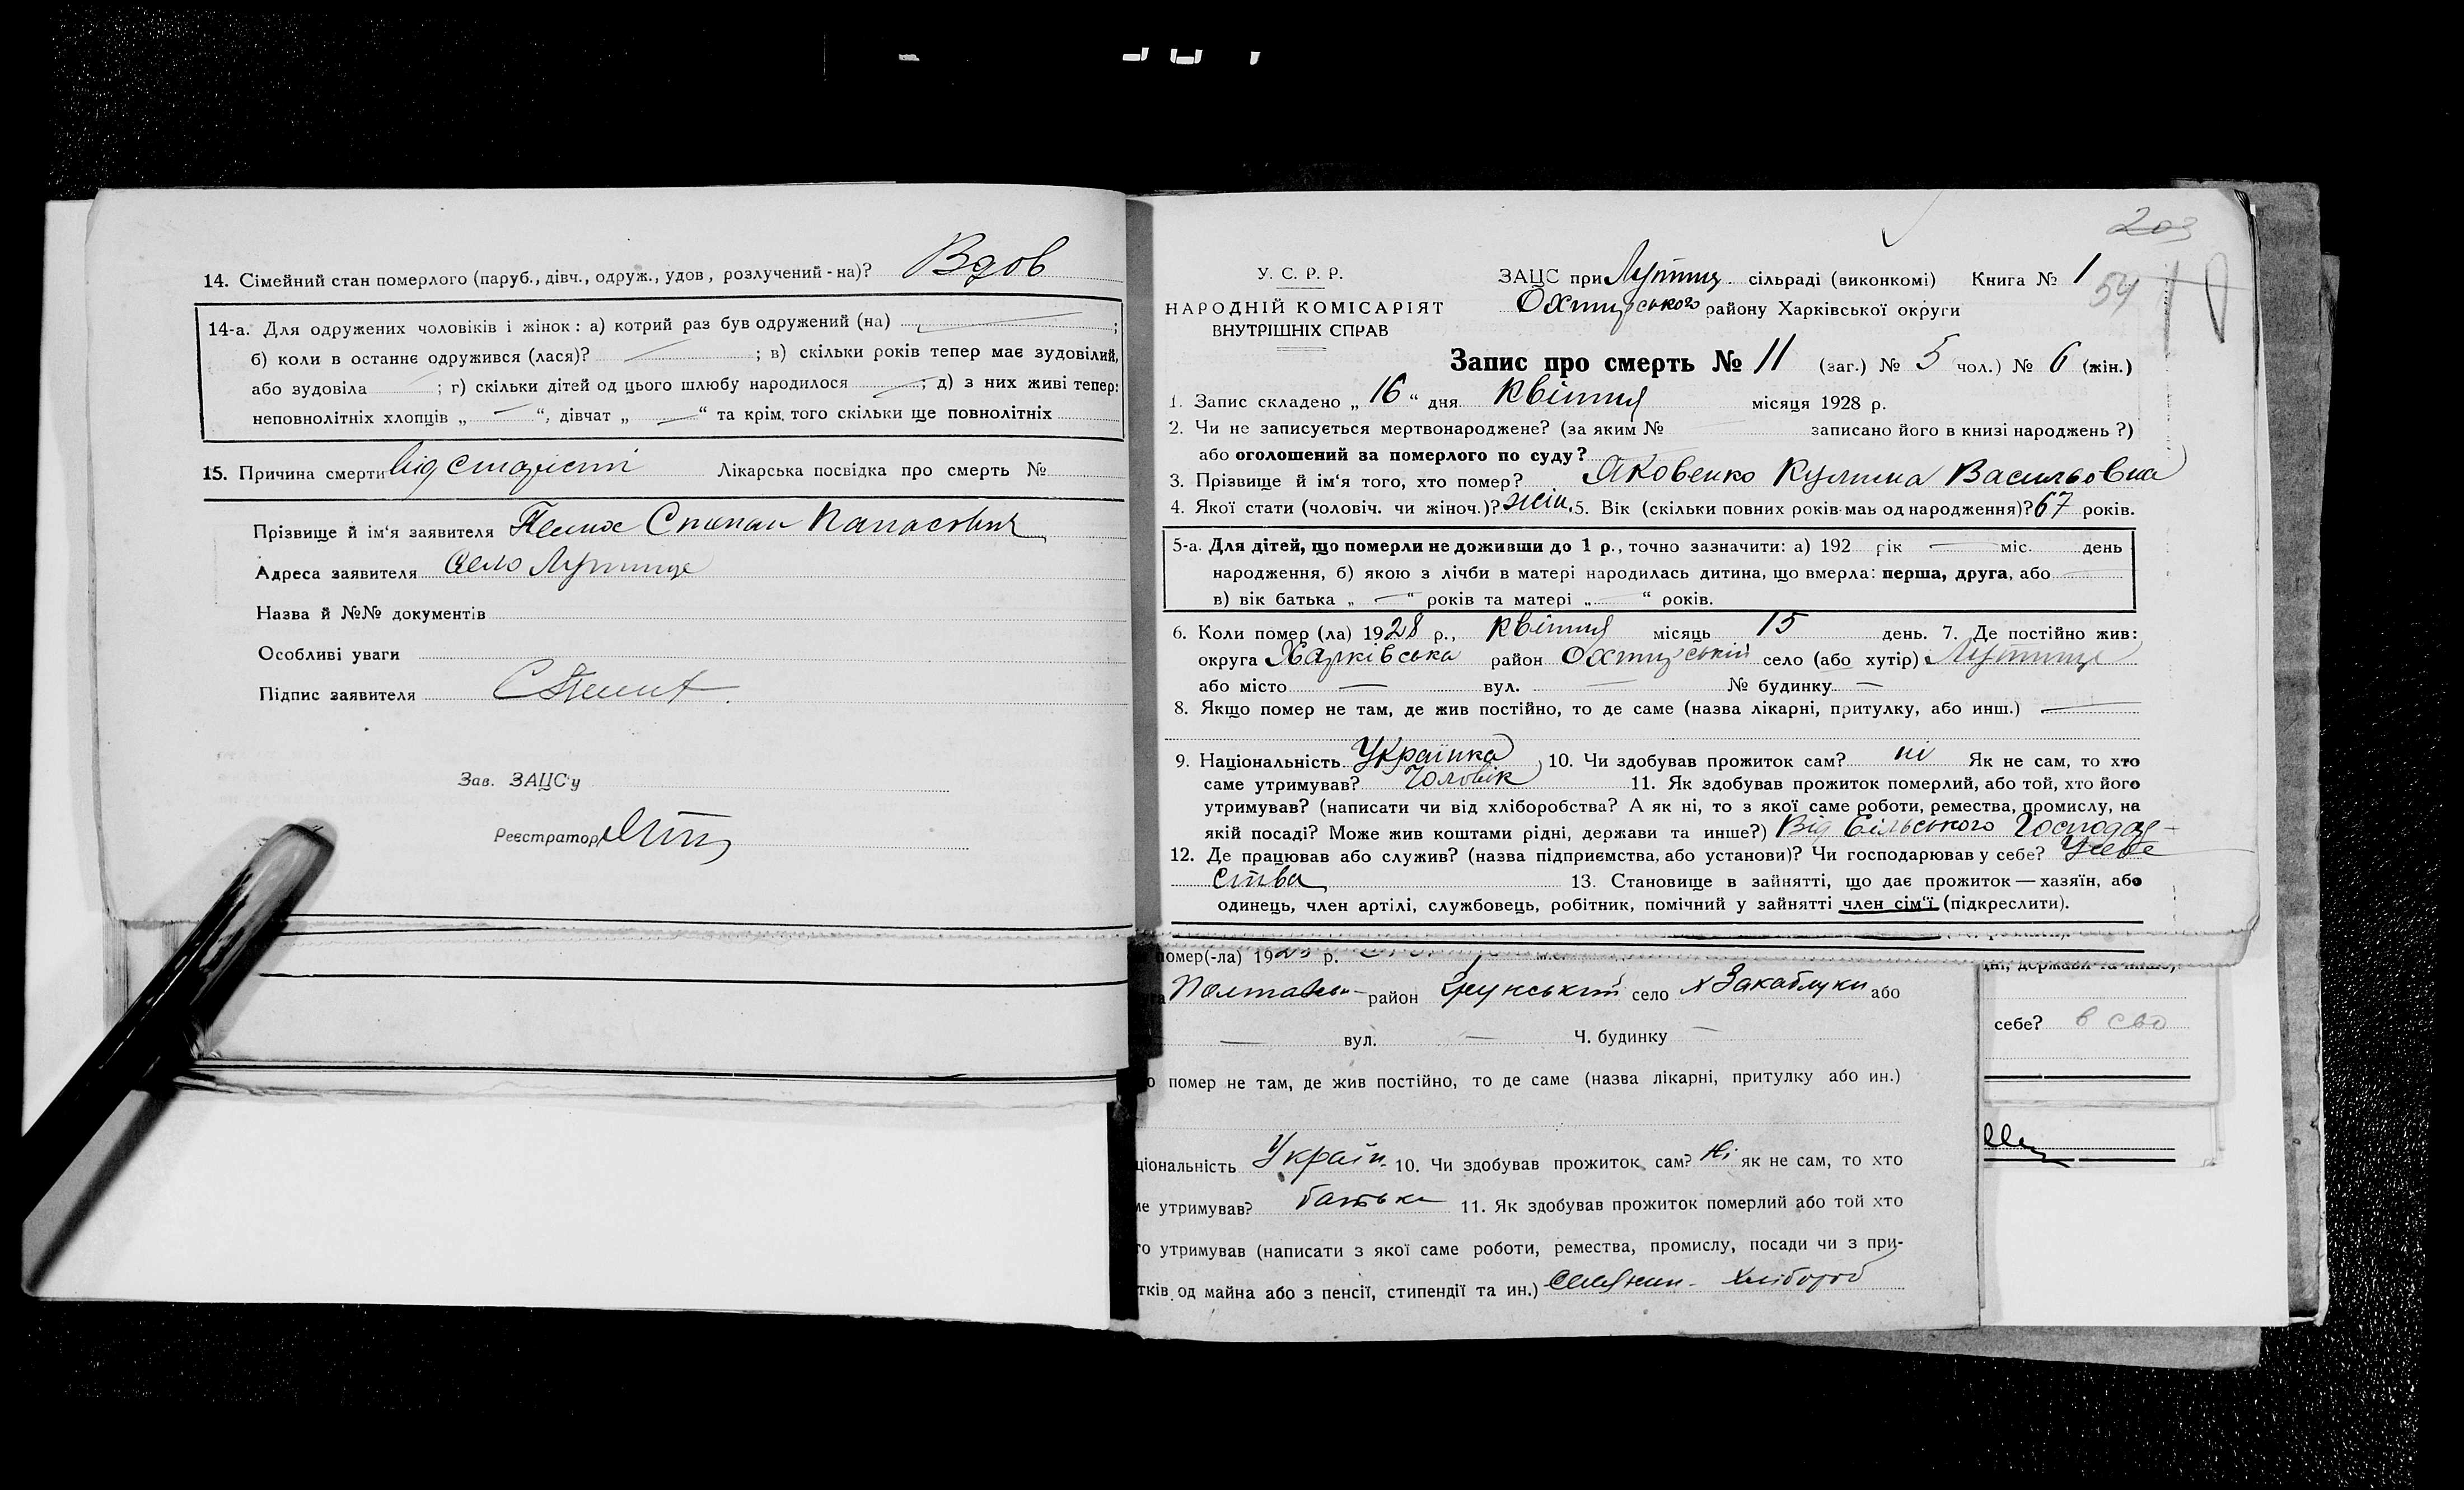 14. Сімейний стан померлого (паруб., дівч., одруж., удов, розлучений-на)? Вдов
14-а. Для одружених чоловіків і жінок: а) котрий раз був одружений (на) ;
б) коли в останнє одружився (лася)? ; в) скільки років тепер має зудовілий,
або зудовіла ; г) скільки дітей од цього шлюбу народилося ; д) з них живі тепер:
неповнолітніх хлопців „ — “, дівчат „ — “ та крім того скільки ще повнолітніх
15. Причина смерти від старісті Лікарська посвідка про смерть №
Прізвище й ім'я заявителя Степан Панасович
Адреса заявителя село Лутище
Назва й №№ документів
Особливі уваги
Підпис заявителя
Зав. ЗАЦС'у
Реєстратор
203
У. С. Р. Р.
НАРОДНІЙ КОМІСАРІЯТ
ВНУТРІШНІХ СПРАВ
ЗАЦС при Лутищ. сільраді (виконкомі) Книга № 1
54
Охтирського району Харківської округи
Запис про смерть № 11 (заг.) № 5 чол.) № 6 (жін.)
1. Запис складено „ 16 “ дня квітня місяця 1928 р.
2. Чи не записується мертвонароджене? (за яким № записано його в книзі народжень?)
або оголошений за померлого по суду?
3. Прізвище й ім'я того, хто помер? Яковенко Кулина Васильовна
4. Якої стати (чоловіч. чи жіноч.)? жін. 5. Вік (скільки повних років мав од народження)? 67 років.
5-а. Для дітей, що померли не доживши до 1 р., точно зазначити: а) 192 рік — міс. день
народження, б) якою з лічби в матері народилась дитина, що вмерла: перша, друга, або
в) вік батька „ — “ років та матері „ “ років.
6. Коли помер (ла) 1928 р., квітня місяць 15 день. 7. Де постійно жив:
округа Харківська район Охтирський село (або хутір) Лутище
або місто — вул. — № будинку —
8. Якщо помер не там, де жив постійно, то де саме (назва лікарні, притулку, або инш.) —
9. Національність Українка 10. Чи здобував прожиток сам? ні Як не сам, то хто
саме утримував? Чоловік 11. Як здобував прожиток померлий, або той, хто його
утримував? (написати чи від хліборобства? А як ні, то з якої саме роботи, ремества, промислу, на
якій посаді? Може жив коштами рідні, держави та инше?) Від Сільського Господар-
12. Де працював або служив? (назва підприємства, або установи)? Чи господарював у себе? У себе
ства 13. Становище в зайнятті, що дає прожиток — хазяїн, або
одинець, член артілі, службовець, робітник, помічний у зайнятті член сім'ї (підкреслити).
помер(-ла) 19 р.
Полтавськ- район Грунський село х Закаблуки або
— вул. — Ч. будинку —
помер не там, де жив постійно, то де саме (назва лікарні, притулку або ин.)
ціональність Україн. 10. Чи здобував прожиток сам? Ні як не сам, то хто
ме утримував? батьки 11. Як здобував прожиток померлий або той хто
го утримував (написати з якої саме роботи, ремества, промислу, посади чи з при-
тків од майна або з пенсії, стипендії та ин.) Селянин- хлібороб
дні, держави та инше,
себе? в сво